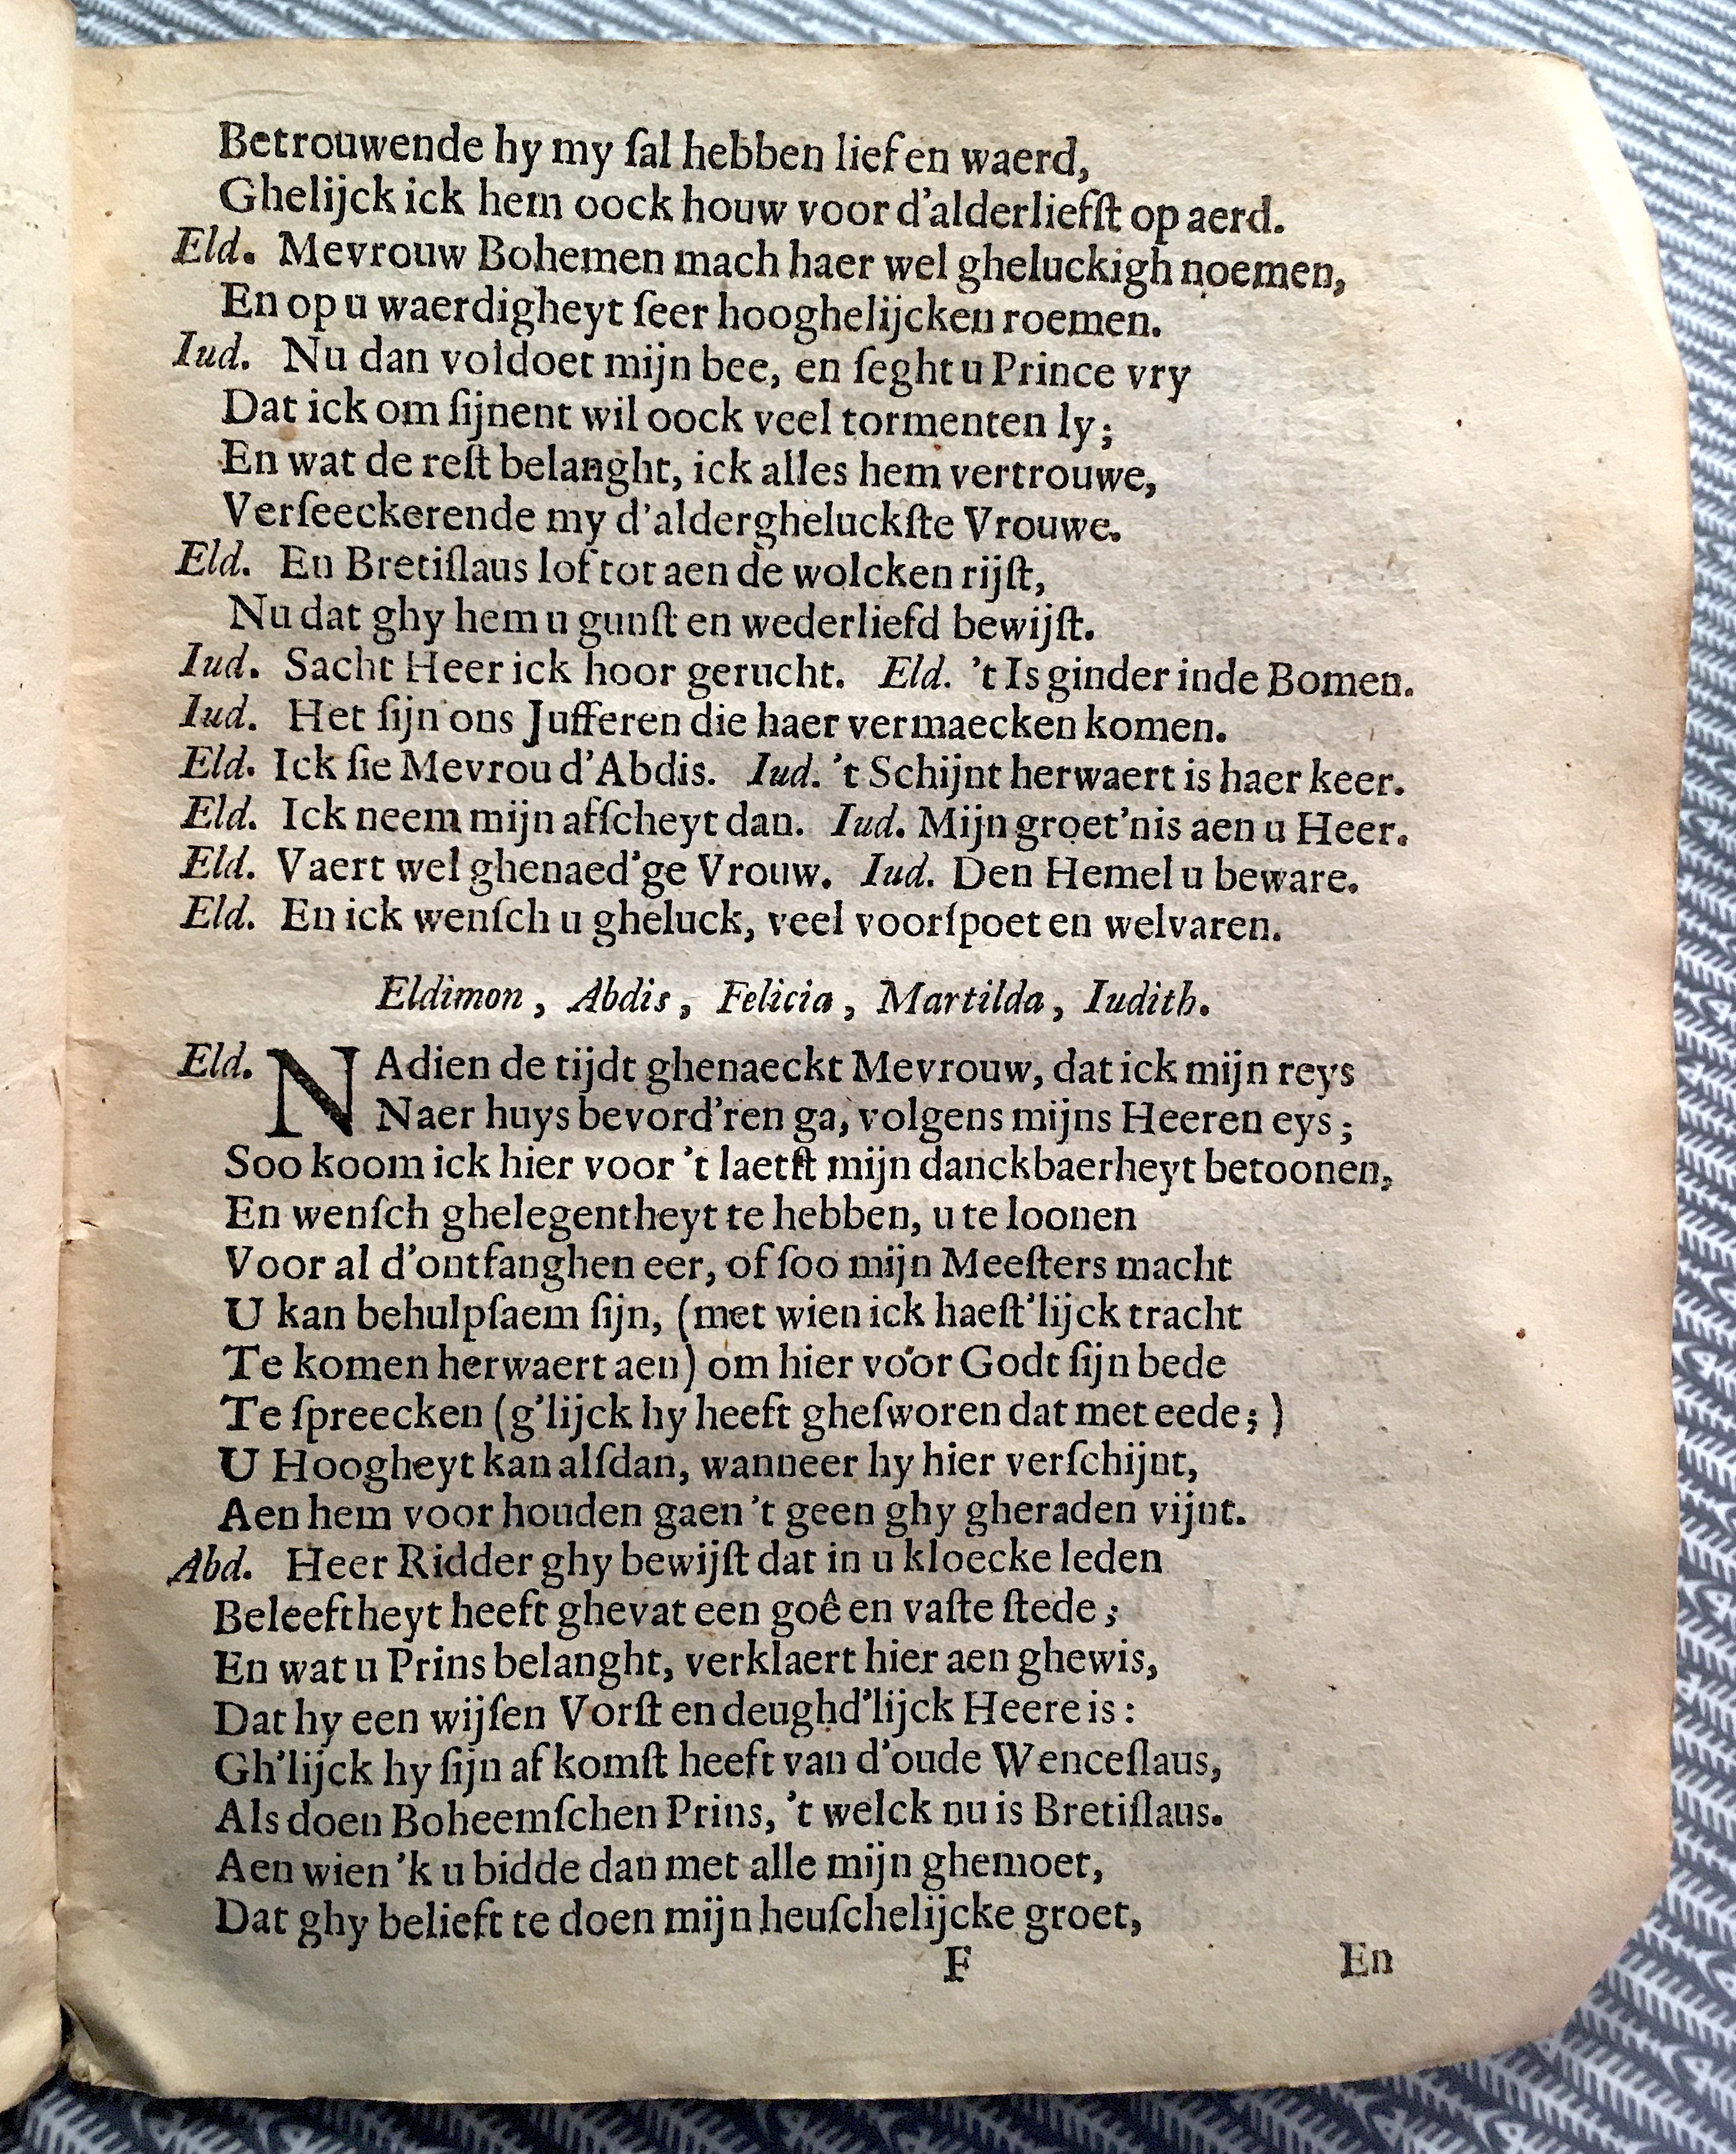 Betrouwende hy my ſal hebben lief en waerd,
Ghelijck ick hem oock houw voor d'alderliefſt op aerd.
Eld. Mevrouw Bohemen mach haer wel gheluckigh noemen,
En op u waerdigheyt ſeer hooghelijcken roemen.
Iud. Nu dan voldoet mijn bee, en ſeght u Prince vry
Dat ick om ſijnent wil oock veel tormenten ly;
En wat de reſt belanght, ick alles hem vertrouwe,
Verſeeckerende my d'aldergheluckſte Vrouwe.
Eld. En Bretiſlaus lof tot aen de wolcken rijſt,
Nu dat ghy hem u gunſt en wederliefd bewijſt.
Iud. Sacht Heer ick hoor gerucht. Eld. 't Is ginder inde Bomen.
Iud. Het ſijn ons Jufferen die haer vermaecken komen.
Eld. Ick ſie Mevrou d'Abdis. Iud. 't Schijnt herwaert is haer keer.
Eld. Ick neem mijn afſcheyt dan. Iud. Mijn groet'nis aen u Heer.
Eld. Vaert wel ghenaed'ge Vrouw. Iud. Den Hemel u beware.
Eld. En ick wenſch u gheluck, veel voorſpoet en welvaren.
Eldimon, Abdis, Felicia, Martilda, Iudith.
Eld. NAdien de tijdt ghenaeckt Mevrouw, dat ick mijn reys
Naer huys bevord'ren ga, volgens mijns Heeren eys;
Soo koom ick hier voor 't laetſt mijn danckbaerheyt betoonen,
En wenſch ghelegentheyt te hebben, u te loonen
Voor al d'ontfanghen eer, of ſoo mijn Meeſters macht
U kan behulpſaem ſijn, (met wien ick haeſt'lijck tracht
Te komen herwaert aen) om hier voor Godt ſijn bede
Te ſpreecken (g'lijck hy heeft gheſworen dat met eede;)
U Hoogheyt kan alſdan, wanneer hy hier verſchijnt,
Aen hem voor houden gaen 't geen ghy gheraden vijnt.
Abd. Heer Ridder ghy bewijſt dat in u kloecke leden
Beleeftheyt heeft ghevat een goê en vaſte ſtede;
En wat u Prins belanght, verklaert hier aen ghewis,
Dat hy een wijſen Vorſt en deughd'lijck Heere is:
Gh'lijck hy ſijn af komſt heeft van d'oude Wenceſlaus,
Als doen Boheemſchen Prins, 't welck nu is Bretiſlaus.
Aen wien 'k u bidde dan met alle mijn ghemoet,
Dat ghy belieft te doen mijn heuſchelijcke groet,
F En